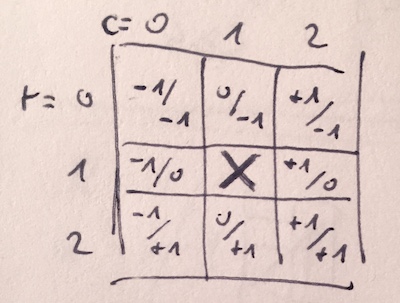 c=0 1 2
r=0 -1/-1 0/-1 +1/-1
1 -1/0 X +1/0
2 -1/+1 0/+1 +1/+1